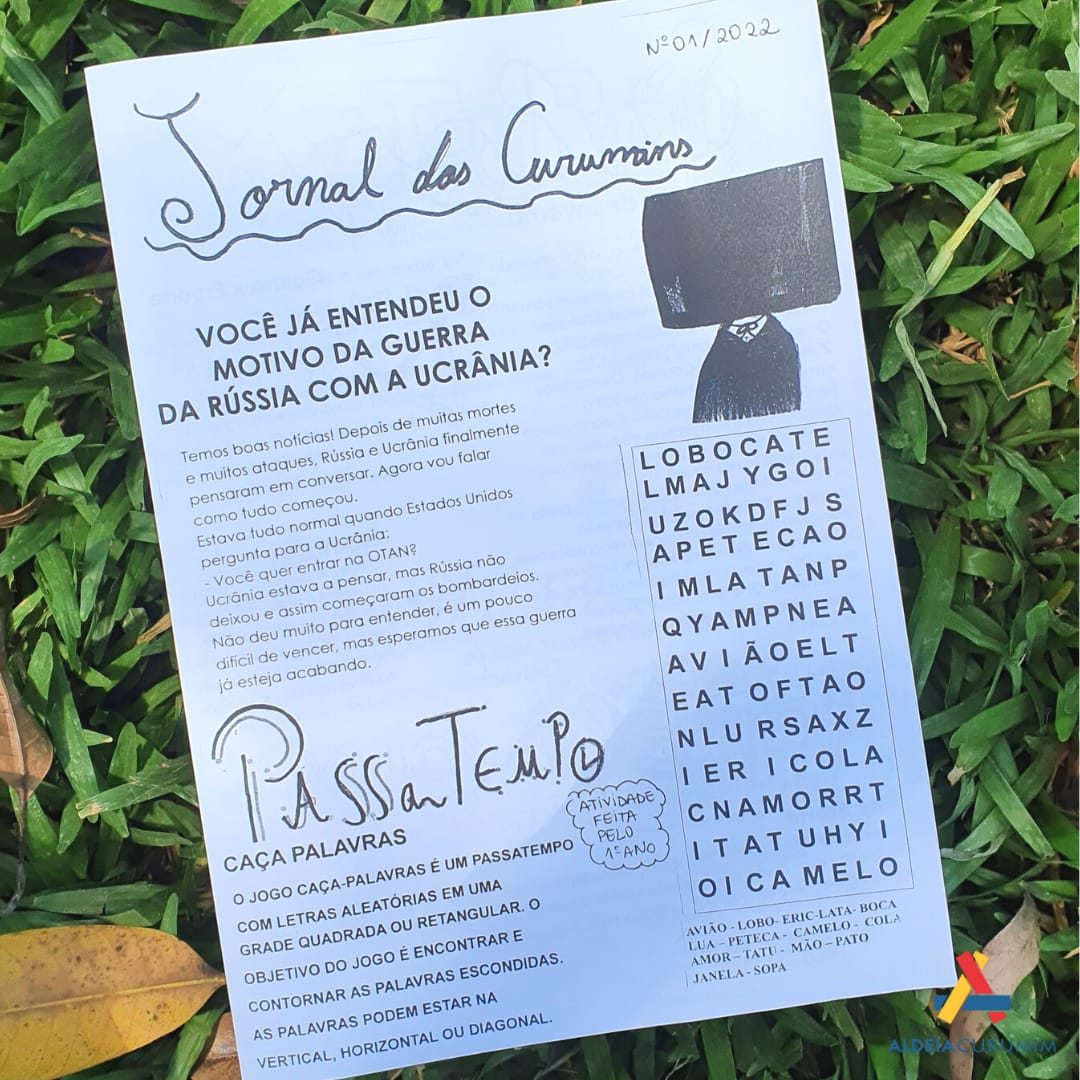 Nº 01/2022
Jornal dos Curumins
VOCÊ JÁ ENTENDEU O
MOTIVO DA GUERRA
DA RÚSSIA COM A UCRÂNIA?
Temos boas notícias! Depois de muitas mortes
e muitos ataques, Rússia e Ucrânia finalmente
pensaram em conversar. Agora vou falar
como tudo começou.
Estava tudo normal quando Estados Unidos
pergunta para a Ucrânia:
- Você quer entrar na OTAN?
Ucrânia estava a pensar, mas Rússia não
deixou e assim começaram os bombardeios.
Não deu muito para entender, é um pouco
difícil de vencer, mas esperamos que essa guerra
já esteja acabando.
PASSATEMPO
ATIVIDADE
FEITA
PELO
1º ANO
CAÇA PALAVRAS
O JOGO CAÇA-PALAVRAS É UM PASSATEMPO
COM LETRAS ALEATÓRIAS EM UMA
GRADE QUADRADA OU RETANGULAR. O
OBJETIVO DO JOGO É ENCONTRAR E
CONTORNAR AS PALAVRAS ESCONDIDAS.
AS PALAVRAS PODEM ESTAR NA
VERTICAL, HORIZONTAL OU DIAGONAL.
L O B O C A T E
L M A J Y G O I
U Z O K D F J S
A P E T E C A O
I M L A T A N P
Q Y A M P N E A
A V I Ã O E L T
E A T O F T A O
N L U R S A X Z
I E R I C O L A
C N A M O R R T
I T A T U H Y I
O I C A M E L O
AVIÃO - LOBO- ERIC-LATA- BOCA
LUA – PETECA - CAMELO - COLA
AMOR – TATU - MÃO – PATO
JANELA - SOPA
ALDEIACURUMIM